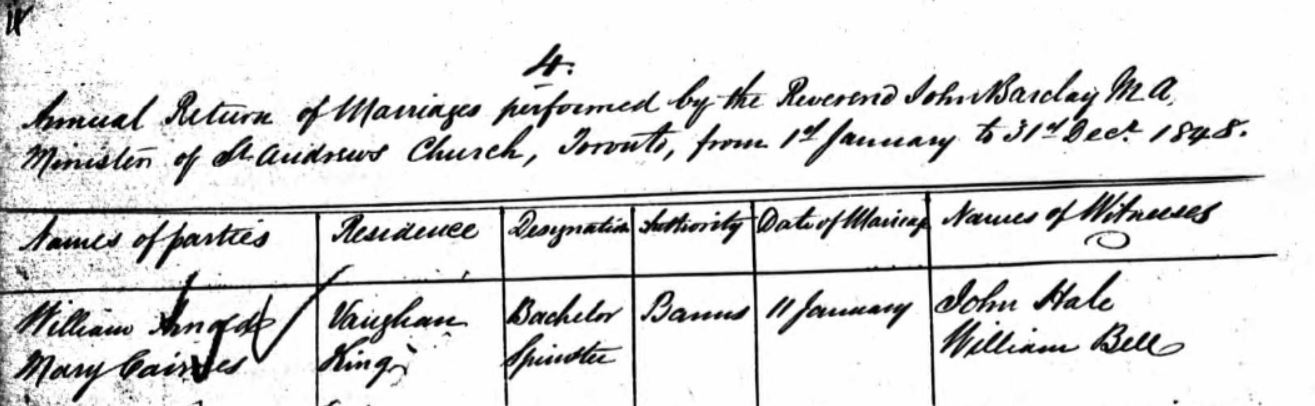 4.
Annual Return of Marriages performed by the Reverend John Barclay M A,
Minister of St. Andrews Church, Toronto, from 1st January to 31st Decr. 1848.
Names of parties Residence Designation Authority Date of Marriage Names of Witnesses
William Arnold Vaughan Bachelor Banns 11 January John Hale
Mary Cairnes King Spinster William Bell